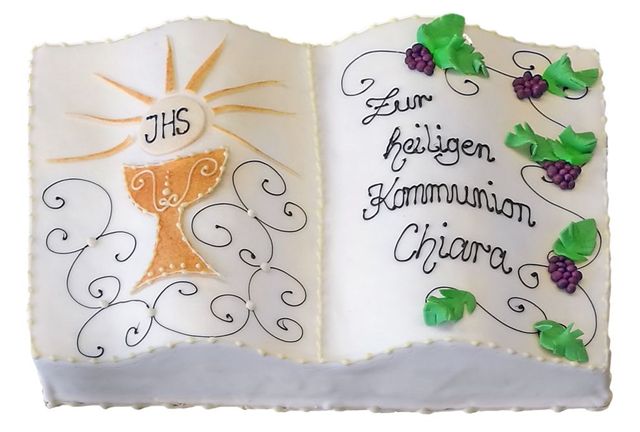 JHS
Zur
heiligen
Kommunion
Chiara